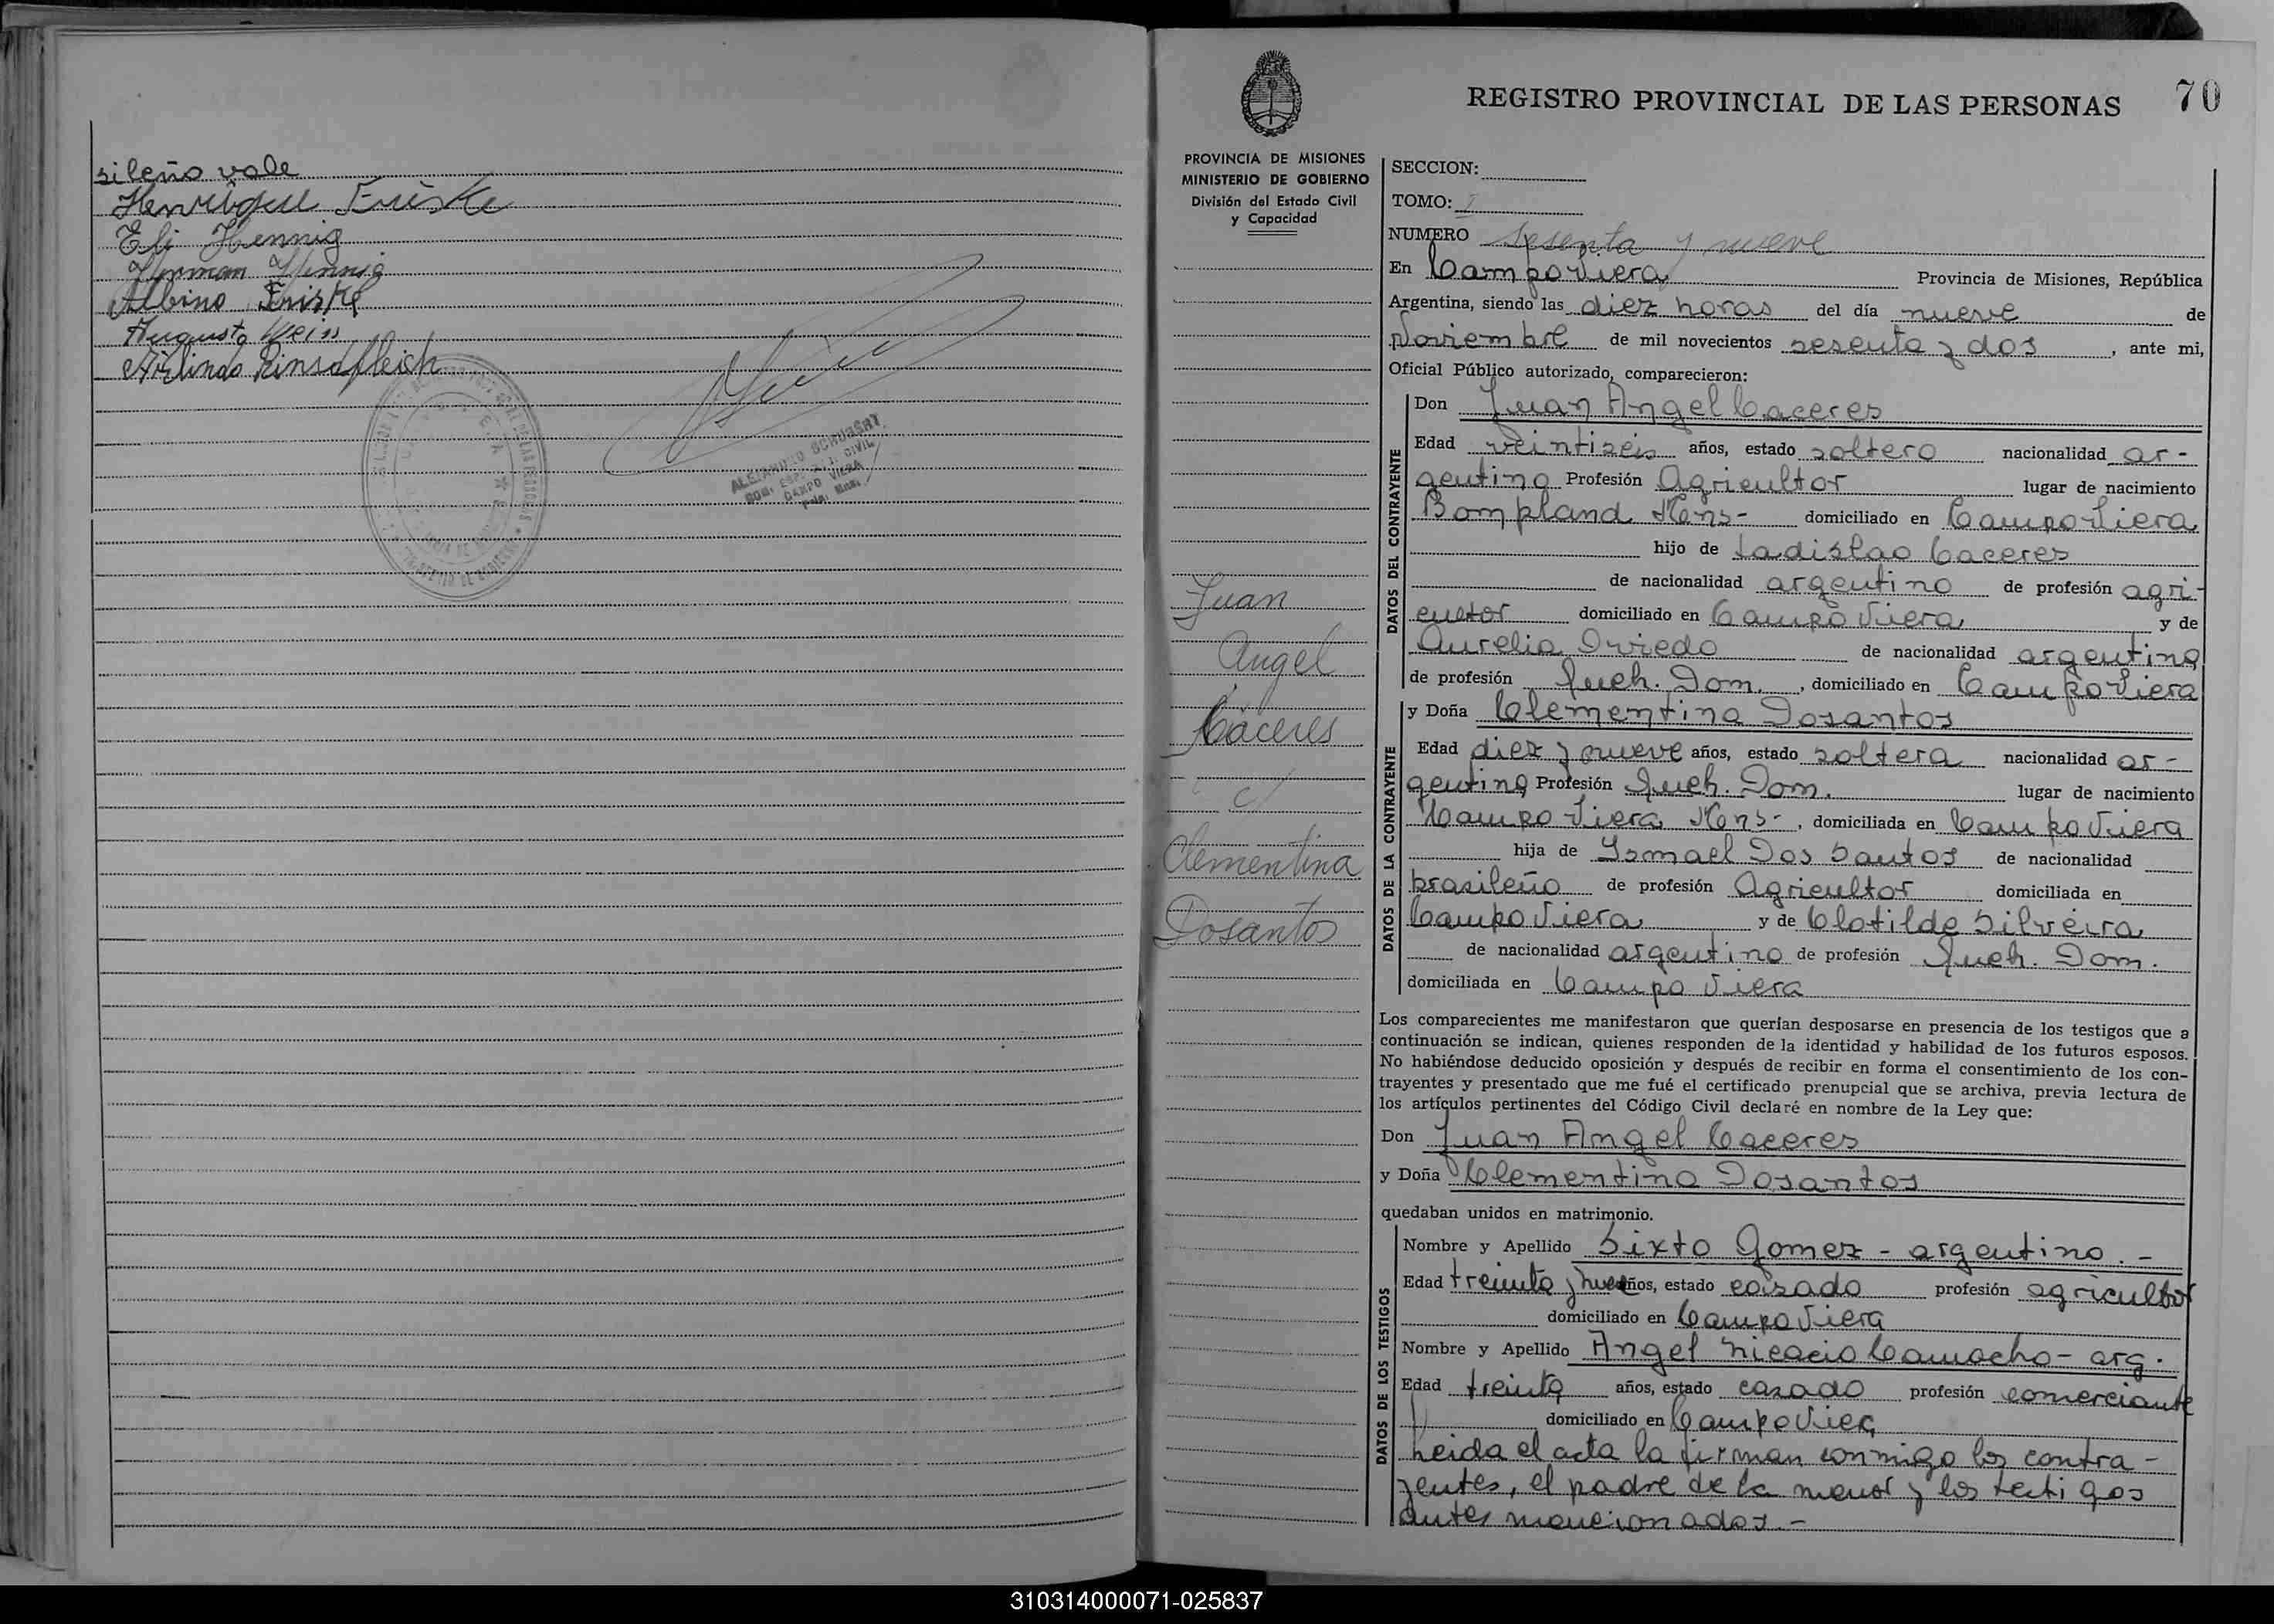 sileño vale
Henrique Friske
Eli Hennig
Herman Hennig
Albino Friske
Augusto Weiss
Arlindo Rinsdfleich
ALEJANDRO SCHUBERT
CAMPO VIERA
REGISTRO PROVINCIAL DE LAS PERSONAS
70
PROVINCIA DE MISIONES
MINISTERIO DE GOBIERNO
División del Estado Civil
y Capacidad
Juan
Angel
Cáceres
c/
Clementina
Dosantos
SECCION:
TOMO: I
NUMERO Sesenta y nueve
En Campo Viera Provincia de Misiones, República
Argentina, siendo las diez horas del día nueve de
Noviembre de mil novecientos sesenta y dos, ante mi,
Oficial Público autorizado, comparecieron:
DATOS DEL CONTRAYENTE
Don Juan Angel Caceres
Edad veintiseis años, estado soltero nacionalidad ar-
gentino Profesión Agricultor lugar de nacimiento
Bompland Mns- domiciliado en Campo Viera
hijo de Ladislao Caceres
de nacionalidad argentino de profesión agri-
cultor domiciliado en Campo Viera y de
Aurelia Oviedo de nacionalidad argentina
de profesión Queh. Dom. , domiciliado en Campo Viera
DATOS DE LA CONTRAYENTE
y Doña Clementina Dosantos
Edad diez y nueve años, estado soltera nacionalidad ar-
gentina Profesión Queh. Dom. lugar de nacimiento
Campo Viera Mns- , domiciliada en Campo Viera
hija de Ismael Dos Santos de nacionalidad
brasileño de profesión Agricultor domiciliada en
Campo Viera y de Clotilde Silveira
de nacionalidad argentino de profesión Queh. Dom.
domiciliada en Campo Viera
Los comparecientes me manifestaron que querían desposarse en presencia de los testigos que a
continuación se indican, quienes responden de la identidad y habilidad de los futuros esposos.
No habiéndose deducido oposición y después de recibir en forma el consentimiento de los con-
trayentes y presentado que me fué el certificado prenupcial que se archiva, previa lectura de
los artículos pertinentes del Código Civil declaré en nombre de la Ley que:
Don Juan Angel Caceres
y Doña Clementina Dosantos
quedaban unidos en matrimonio.
DATOS DE LOS TESTIGOS
Nombre y Apellido Sixto Gomez - argentino -
Edad treinta y nueve años, estado casado profesión agricultor
domiciliado en Campo Viera
Nombre y Apellido Angel Nicacio Camacho - arg.
Edad treinta años, estado casado profesión comerciante
domiciliado en Campo Viera
Leida el acta la firman conmigo los contra-
yentes, el padre de la menor y los testigos
antes mencionados.-
310314000071-025837